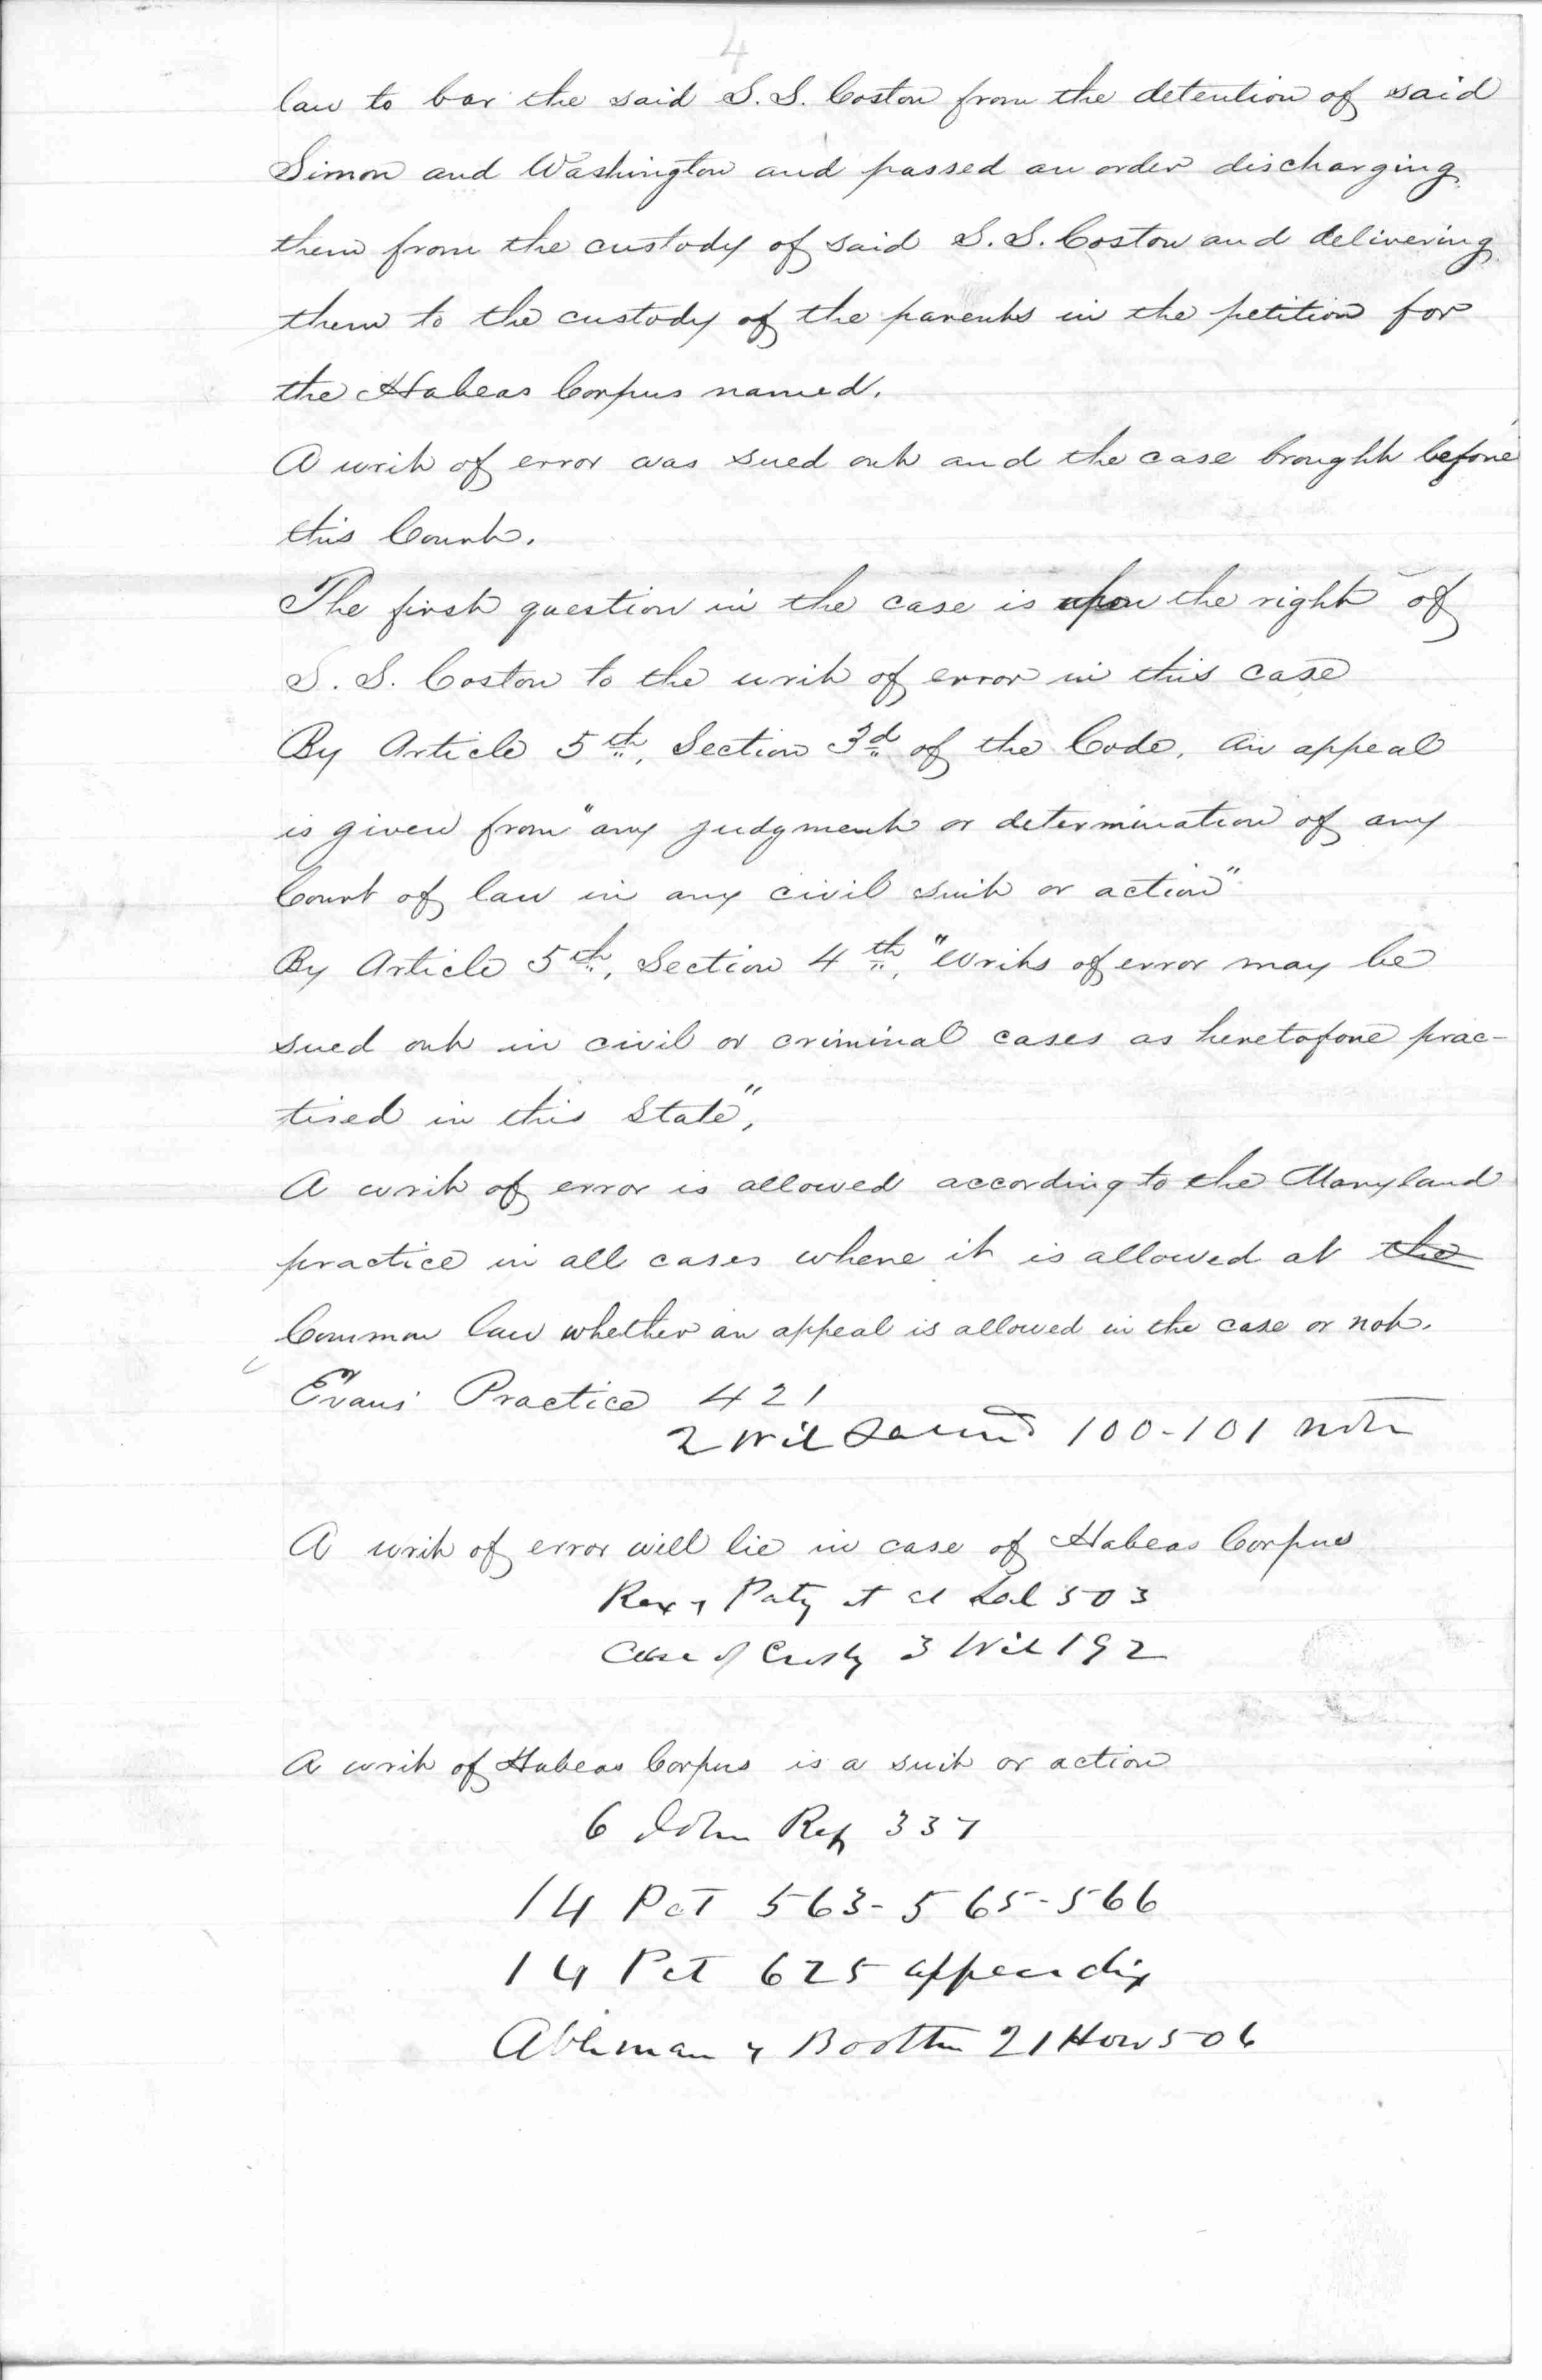 4
law to bar the said S. S. Coston from the detention of said
Simon and Washington and passed an order discharging
them from the custody of said S. S. Coston and delivering
them to the custody of the parents in the petition for
the Habeas Corpus named.
A writ of error was sued out and the case brought before
this Court.
The first question in the case is upon the right of
S. S. Coston to the writ of error in this case
By Article 5th, Section 3d of the Code, an appeal
is given from "any judgment or determination of any
Court of law in any civil suit or action"
By Article 5th, Section 4th, "Writs of error may be
sued out in civil or criminal cases as heretofore prac-
tised in this State",
A writ of error is allowed according to the Maryland
practice in all cases where it is allowed at the
Common law whether an appeal is allowed in the case or not.
Evans' Practice 421
2 Wil Saund 100-101 note
A writ of error will lie in case of Habeas Corpus
Rex v Paty et al Sal 503
Case of Crosby 3 Wil 192
A writ of Habeas Corpus is a suit or action
6 John Rep 337
14 Pet 563-565-566
14 Pet 625 appendix
Ableman v Booth 21 How 506